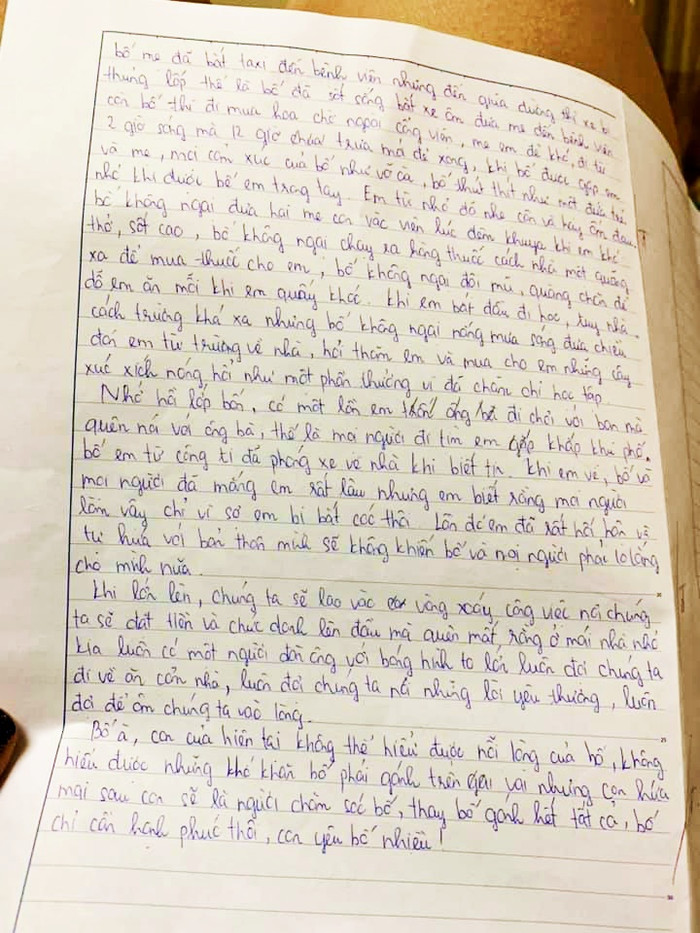 bố mẹ đã bắt taxi đến bệnh viện nhưng đến giữa đường thì xe bị
thủng lốp thế là bố đã sốt sắng bắt xe ôm đưa mẹ đến bệnh viện
còn bố thì đi mua hoa chờ ngoài cổng viện, mẹ em đẻ khó, đi từ
2 giờ sáng mà 12 giờ trưa mới đẻ xong, khi bố được gặp em
và mẹ, mọi cảm xúc của bố như vỡ oà, bố thút thít như một đứa trẻ
nhỏ khi được bế em trong tay. Em từ nhỏ đã nhẹ cân và hay ốm đau,
bố không ngại đưa hai mẹ con vào viện lúc đêm khuya khi em khó
thở, sốt cao, bố không ngại chạy ra hàng thuốc cách nhà một quãng
xa để mua thuốc cho em, bố không ngại đội mũ, quàng chăn để
dỗ em ăn mỗi khi em quấy khóc. Khi em bắt đầu đi học, tuy nhà
cách trường khá xa nhưng bố không ngại nắng mưa sáng đưa chiều
đón em từ trường về nhà, hỏi thăm em và mua cho em những cây
xúc xích nóng hổi như một phần thưởng vì đã chăm chỉ học tập.
Nhớ hồi lớp bốn, có một lần em đi chơi với bạn mà
quên nói với ông bà, thế là mọi người đi tìm em khắp khu phố.
bố em từ công ti đã phóng xe về nhà khi biết tin. Khi em về, bố và
mọi người đã mắng em rất lâu nhưng em biết rằng mọi người
làm vậy chỉ vì sợ em bị bắt cóc thôi. Lần đó em đã rất hối hận và
tự hứa với bản thân mình sẽ không khiến bố và mọi người phải lo lắng
cho mình nữa.
Khi lớn lên, chúng ta sẽ lao vào vòng xoáy công việc nơi chúng
ta sẽ đặt tiền và chức danh lên đầu mà quên mất rằng ở mái nhà nhỏ
kia luôn có một người đàn ông với bóng hình to lớn luôn đợi chúng ta
đi về ăn cơm nhà, luôn đợi chúng ta nói những lời yêu thương, luôn
đợi để ôm chúng ta vào lòng.
Bố à, con của hiện tại không thể hiểu được nỗi lòng của bố, không
hiểu được những khó khăn bố phải gánh trên vai nhưng con hứa
mai sau con sẽ là người chăm sóc bố, thay bố gánh hết tất cả, bố
chỉ cần hạnh phúc thôi, con yêu bố nhiều!